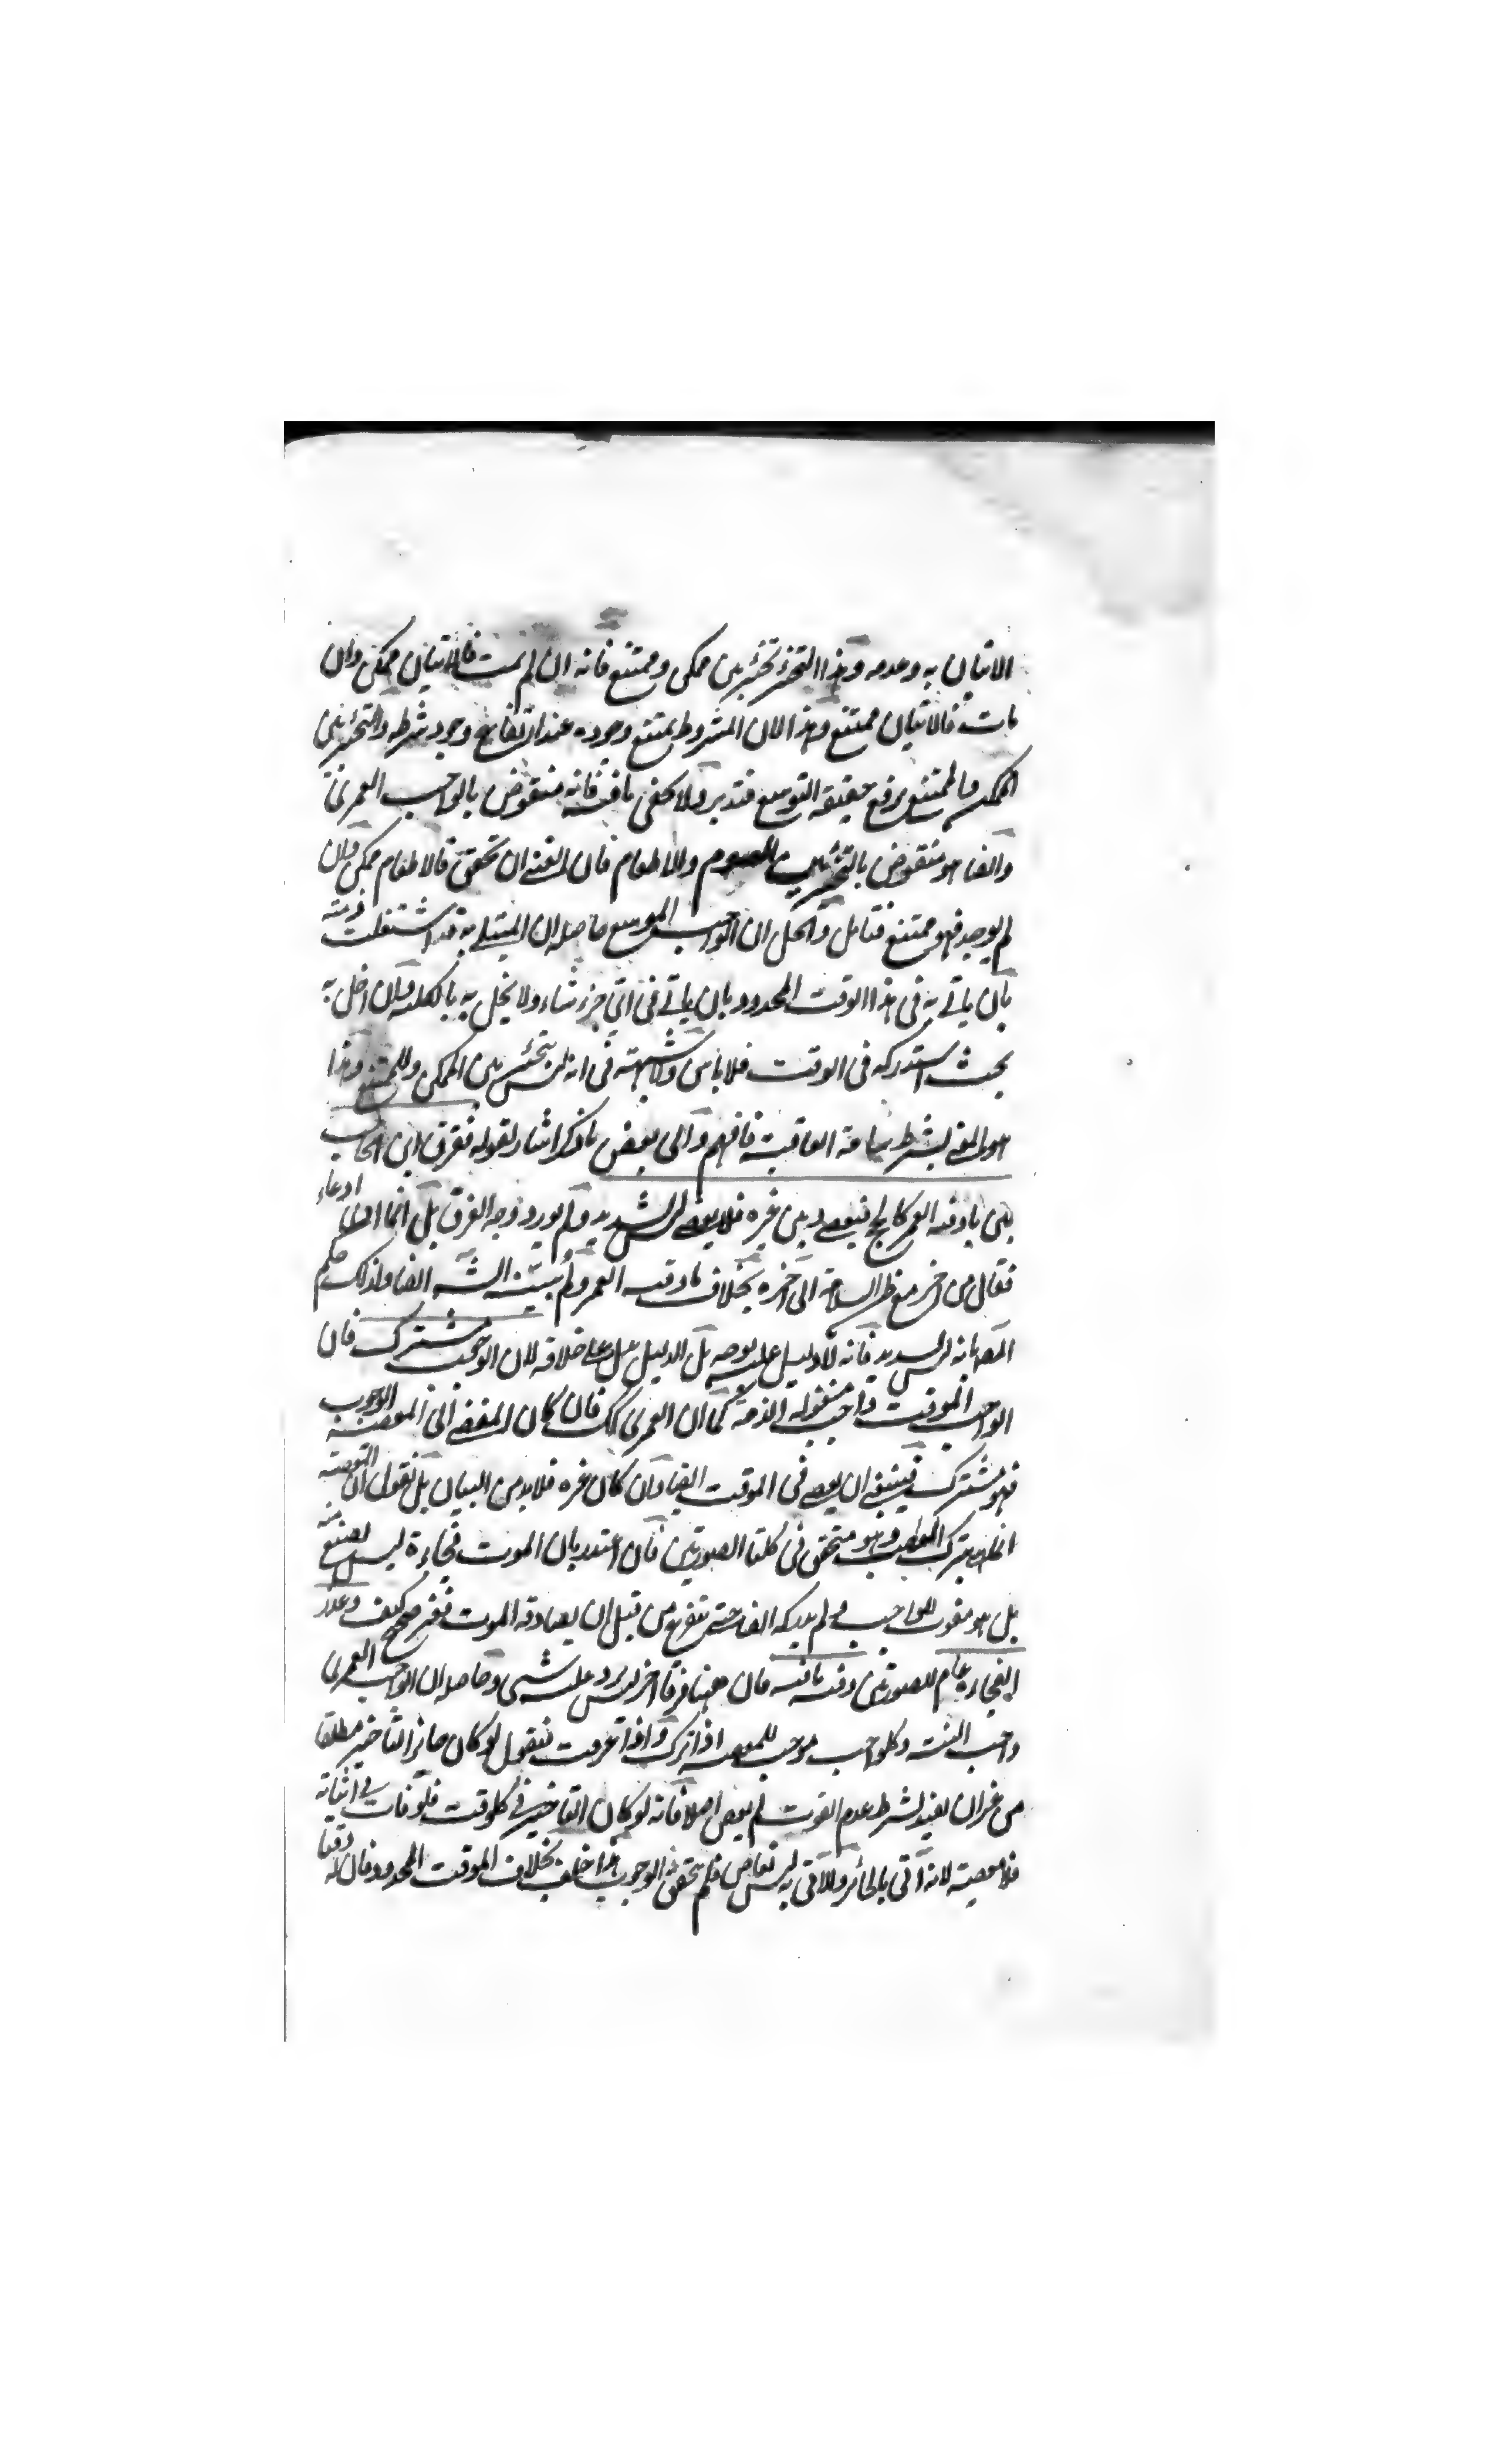 الاتيان به وعدمه وهذا التخيير تخيير بين ممكن وممتنع فانه ان لم يمت فالاتيان ممكن وان
مات فالاتيان ممتنع وهذا لان المشروط يمتنع وجوده عند ارتفاع وجود شرطه والتخيير بين
الممكن والممتنع يرفع حقيقة التوسع فتدبر ولا يخفى ما فيه فانه منقوض بالواجب العمري
وايضا هو منقوض بالتخيير بين الصوم والاطعام فان الغنى ان تحقق فالاطعام ممكن وان
لم يوجد فهو ممتنع فتامل والحل ان الواجب الموسع حاصله ان المبتلى به قد اشتغلت ذمته
بان ياتي به في هذا الوقت المحدود بان ياتي في اي جزء شاء ولا يخل به بالكلية وان اخل به
بحيث استدركه في الوقت فلا باس ولا شبهة في انه ليس تخيير بين الممكن والممتنع وهذا
هو المعني بشرط سلامة العاقبة فافهم والى بعض ما ذكر اشار بقوله ففرق ابن الحاجب
بين ما وقته العمر كالحج فيعصي وبين غيره فلا يعصي ليس بسديد ولم يورد وجه الفرق بل انما ادعى ادعاء
فقال من اخر مع ظن السلامة الى اخره بخلاف ما وقته العمر ولم يبينه الشـ ايضا ولذلك حكم
المصـ بانه ليس بسديد فانه لا دليل عليه يوجبه بل الدليل يدل على خلافه لان الوجوب مشترك فان
الواجب الموقت واجب مشغولة الذمة كما ان العمري كك فان كان المفضي الى المعصية الوجوب
فهو مشترك فينبغي ان يعصي في الموقت ايضا وان كان غيره فلا بد من البيان بل نقول ان المعصية
انما هو بترك الواجب وهو متحقق في كلتا الصورتين فان اعتذر بان الموت فجاءة ليس بصنع منه
بل هو مفوت للواجب ولم يدركه ايضا حتى يتفرغ من قبل ان يصادفه الموت فغير صحيح كيف وعذر
الفجاءة عام للصورتين وفيه ما فيه فان ههنا فرقا اخر ليس يرد عليه شي وحاصله ان الواجب العمري
واجب البتة وكل واجب موجب للمعصية اذا ترك واذا عرفت فنقول لو كان جائز التاخير مطلقا
من غير ان يقيد بشرط عدم الفوت لم يعص اصلا فانه لو كان التاخير في كل وقت فلو فات في اثنائه
فلا معصية لانه اتى بالجائز والاتي به ليس بعاص فلم يتحقق فيه الوجوب هذا خلف بخلاف الموقت المحدود فان له وقتا